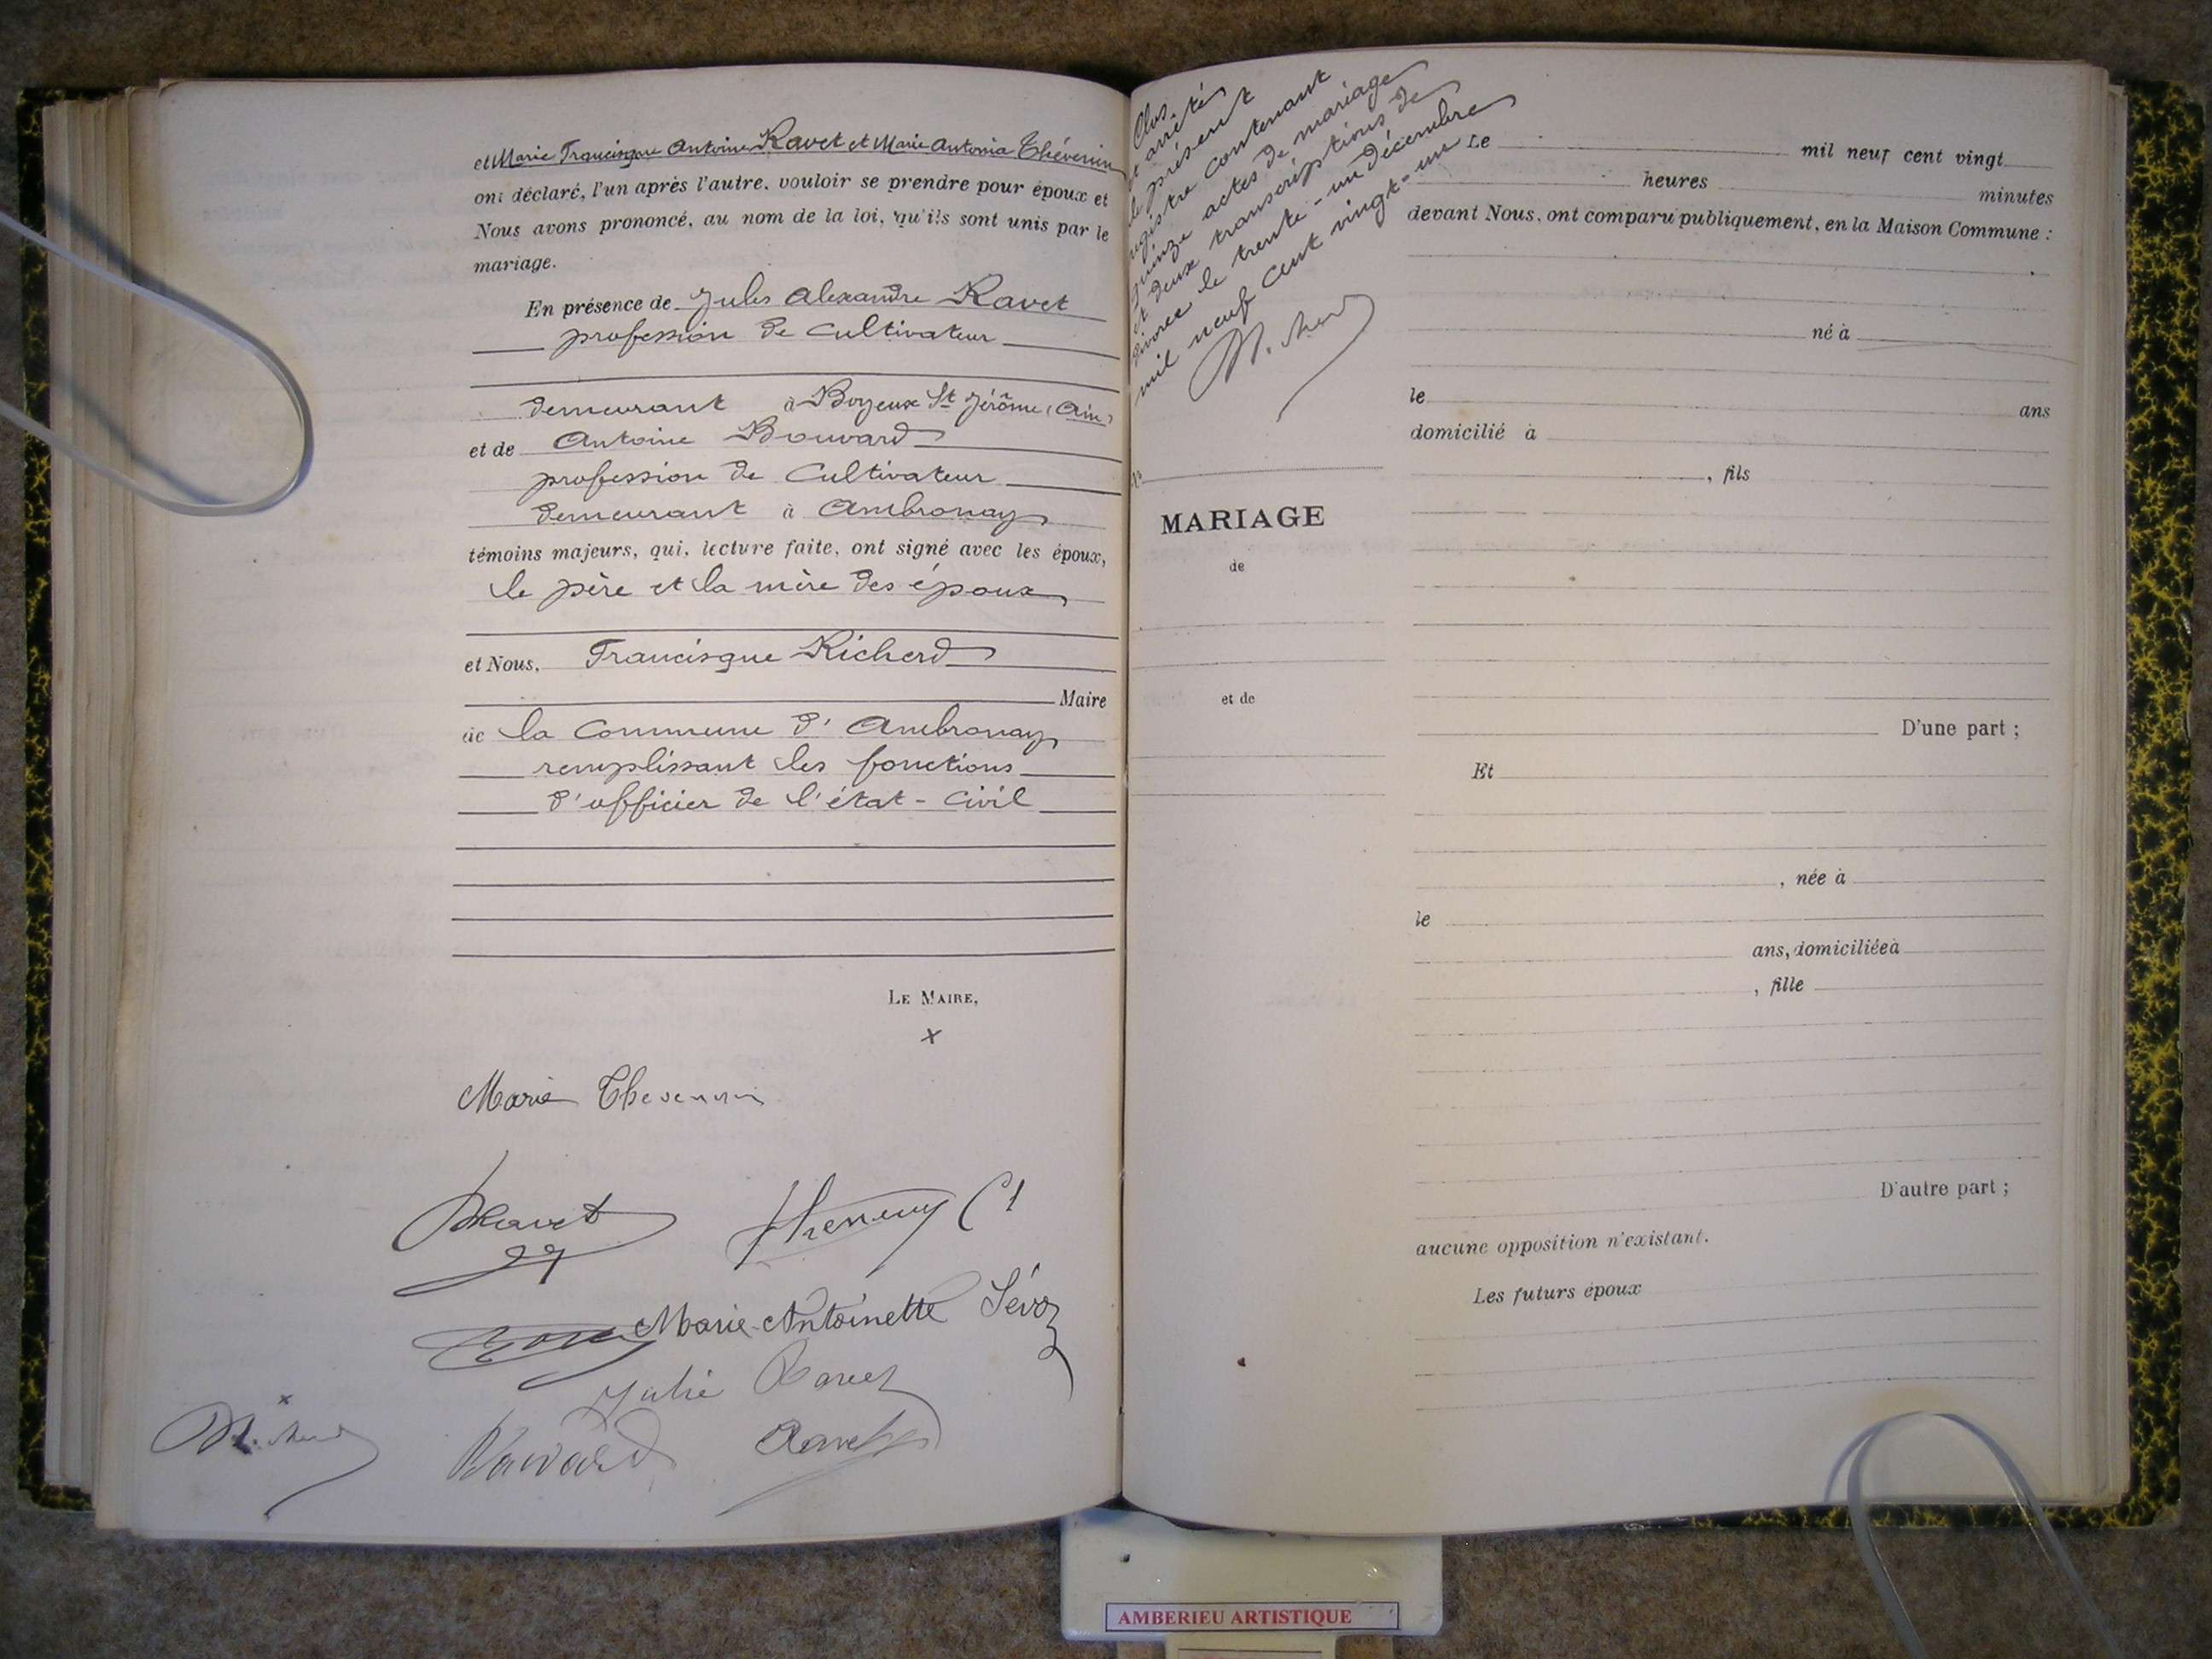 et Marie Francisque Antoine Ravet et Marie Antonia Thévenin
ont déclaré, l'un après l'autre, vouloir se prendre pour époux et
Nous avons prononcé, au nom de la loi, qu'ils sont unis par le
mariage.
En présence de Jules Alexandre Ravet
profession de Cultivateur
demeurant à Boyeux St Jérôme (Ain)
et de Antoine Bouvard
profession de Cultivateur
demeurant à Ambronay
témoins majeurs, qui, lecture faite, ont signé avec les époux,
le père et la mère des époux
et Nous, Francisque Richerd
Maire
de la Commune d'Ambronay
remplissant les fonctions
d'officier de l'état-civil
LE MAIRE,
x
Marie Thevenin
Ravet
Marie-Antoinette Sévoz
Julie Ravet
x
Bouvard Ravet
Clos
et arrêté
le présent
registre contenant
quinze actes de mariage
et deux transcriptions de
divorce le trente-un décembre
mil neuf cent vingt-un
MARIAGE
de
et de
Le mil neuf cent vingt
heures minutes
devant Nous, ont comparu publiquement, en la Maison Commune :
né à
le ans
domicilié à
, fils
D'une part ;
Et
, née à
le
ans, domiciliée à
, fille
D'autre part ;
aucune opposition n'existant.
Les futurs époux
AMBERIEU ARTISTIQUE